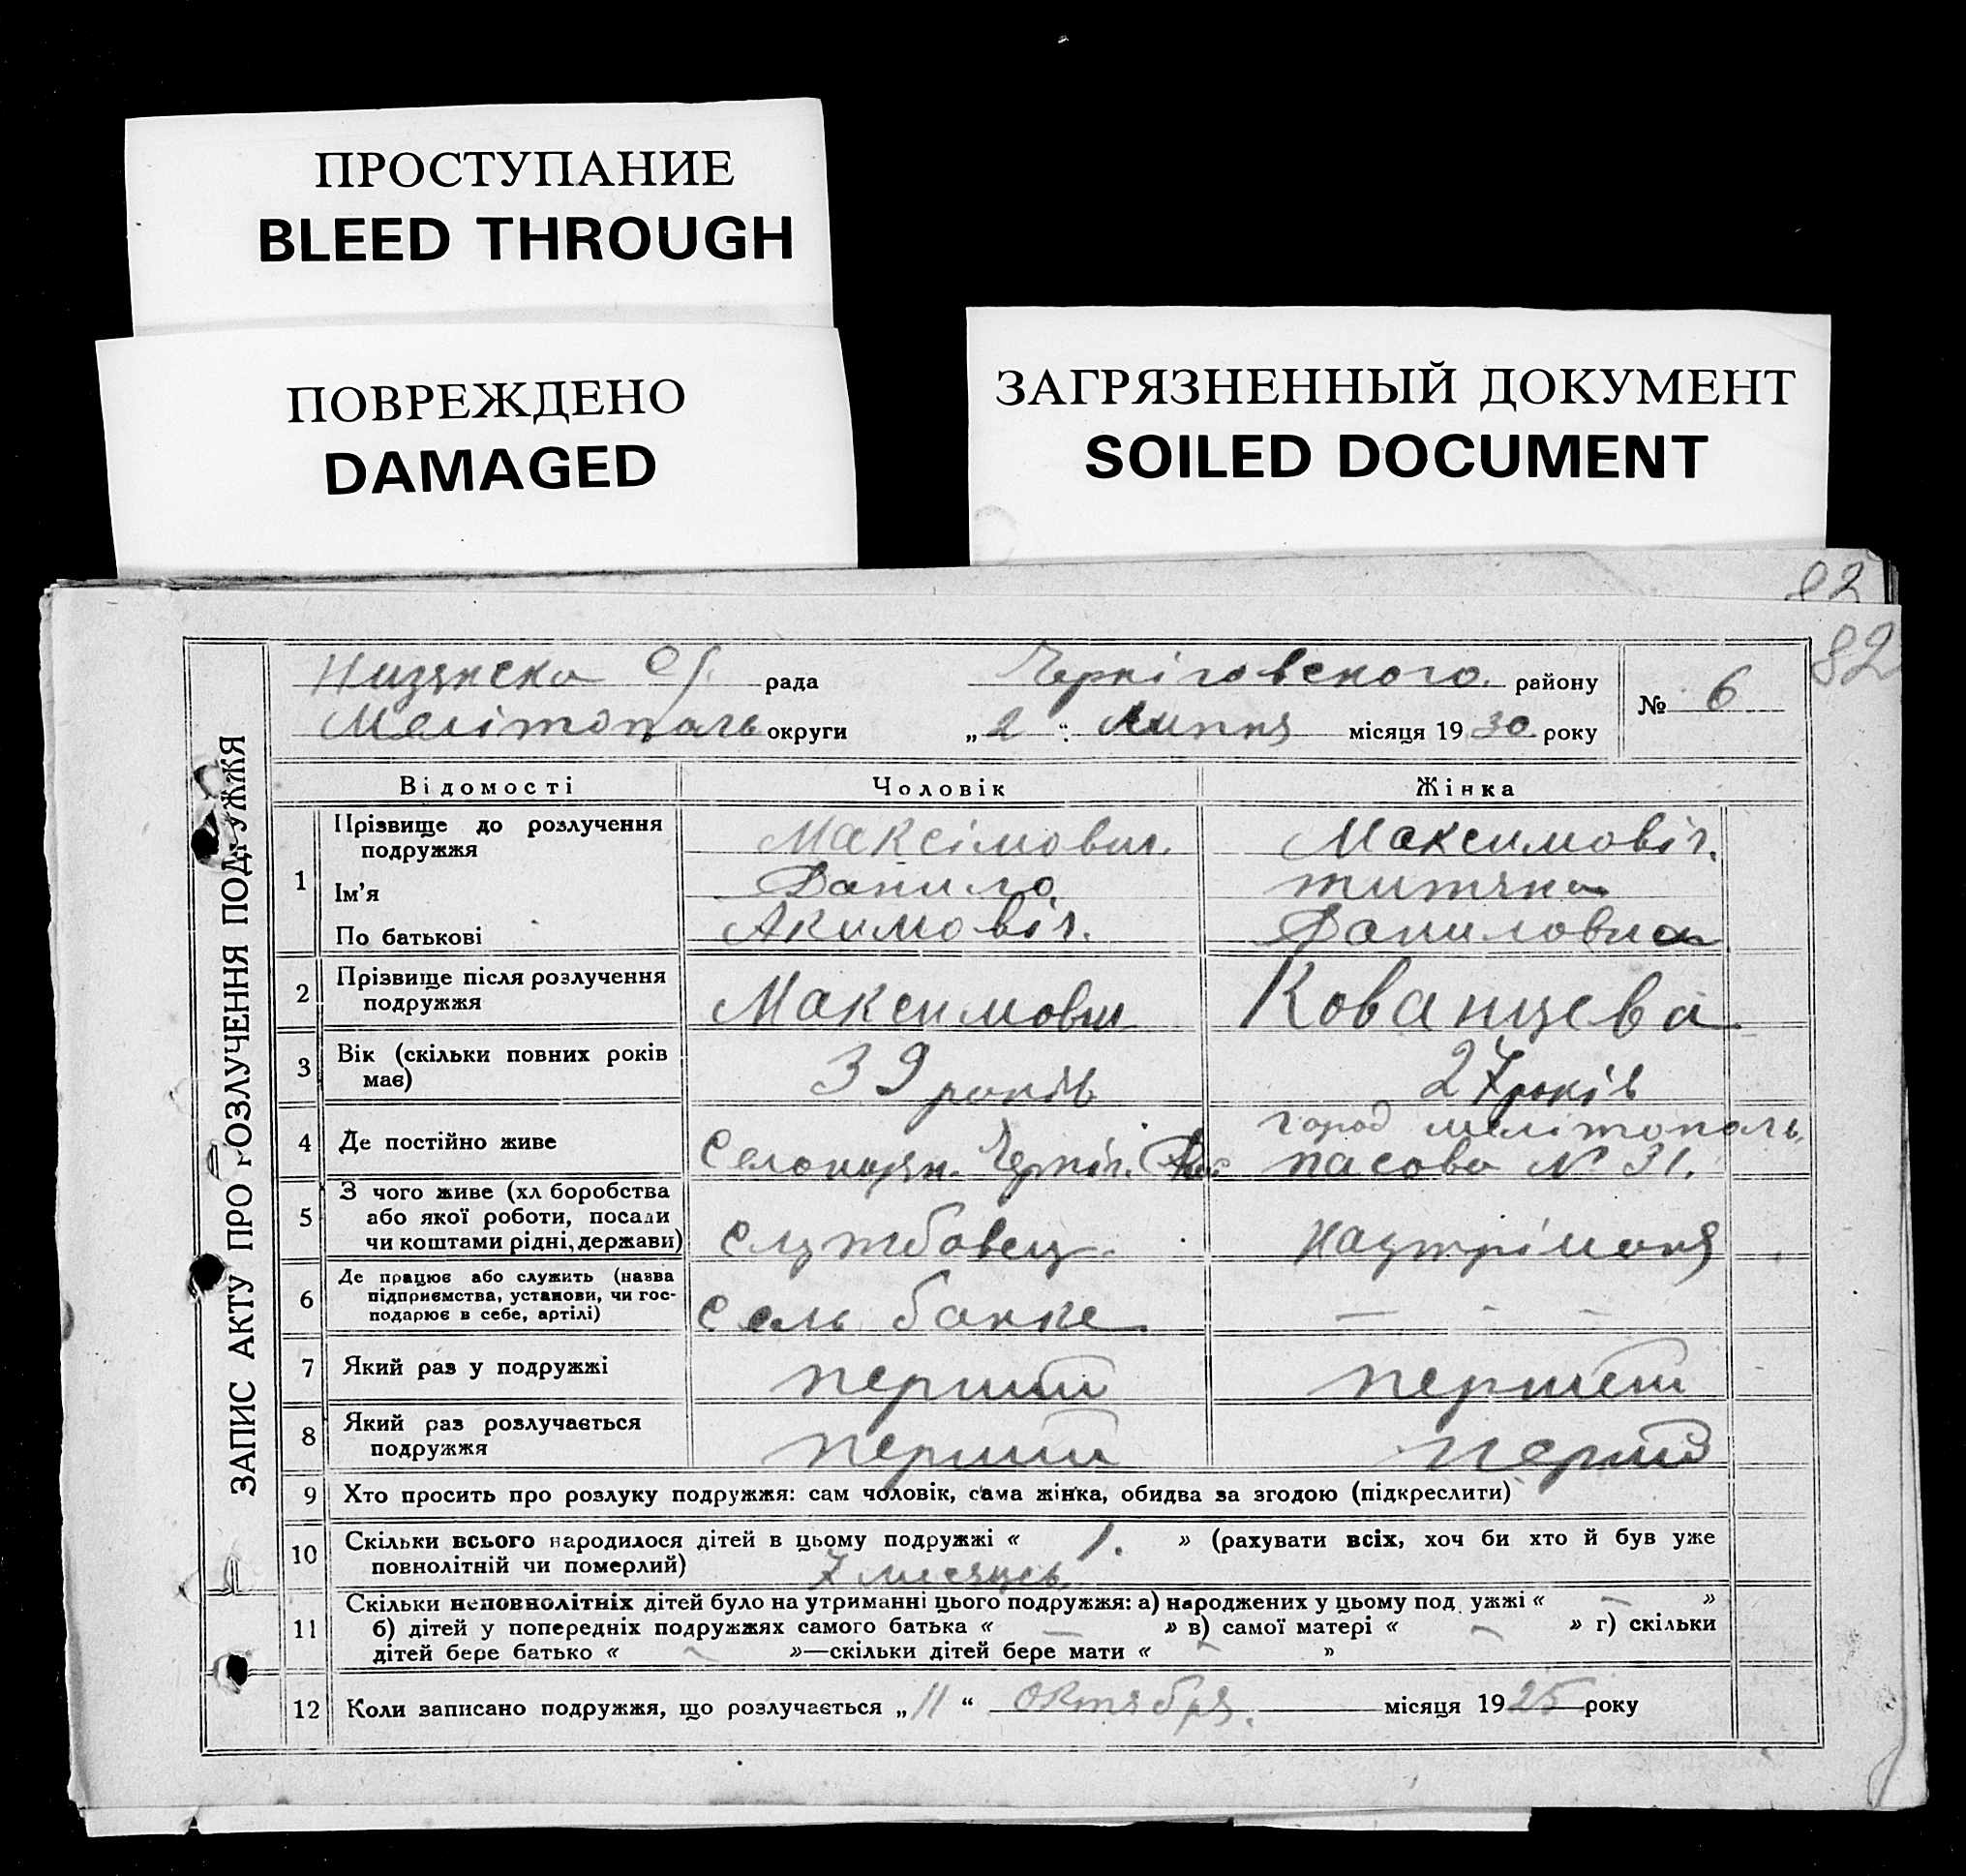 ПРОСТУПАНИЕ
BLEED THROUGH
ПОВРЕЖДЕНО
DAMAGED
ЗАГРЯЗНЕННЫЙ ДОКУМЕНТ
SOILED DOCUMENT
82
82
ЗАПИС АКТУ ПРО РОЗЛУЧЕННЯ ПОДРУЖЖЯ
рада Черніговского району № 6
Мелітополь округи „2“ Липня місяця 1930 року
Відомості Чоловік Жінка
1 Прізвище до розлучення подружжя Максімович. Максимовіч.
Ім'я Данило
По батькові Акимовіч. Даниловна
2 Прізвище після розлучення подружжя Максимович Кованцева
3 Вік (скільки повних років має) 39 років 27 років
4 Де постійно живе город мелітополь
№ 31.
5 З чого живе (хліборобства або якої роботи, посади чи коштами рідні, держави) службовец.
6 Де працює або служить (назва підприємства, установи, чи господарює в себе, артілі) Сель банке — - -
7 Який раз у подружжі перший перший
8 Який раз розлучається подружжя перший перший
9 Хто просить про розлуку подружжя: сам чоловік, сама жінка, обидва за згодою (підкреслити)
10 Скільки всього народилося дітей в цьому подружжі « 1. » (рахувати всіх, хоч би хто й був уже
повнолітній чи померлий) 7 месяцев
11 Скільки неповнолітніх дітей було на утриманні цього подружжя: а) народжених у цьому подружжі « — »
б) дітей у попередніх подружжях самого батька « — » в) самої матері « — » г) скільки
дітей бере батько « — »—скільки дітей бере мати « — »
12 Коли записано подружжя, що розлучається „11“ октября. місяця 1925 року